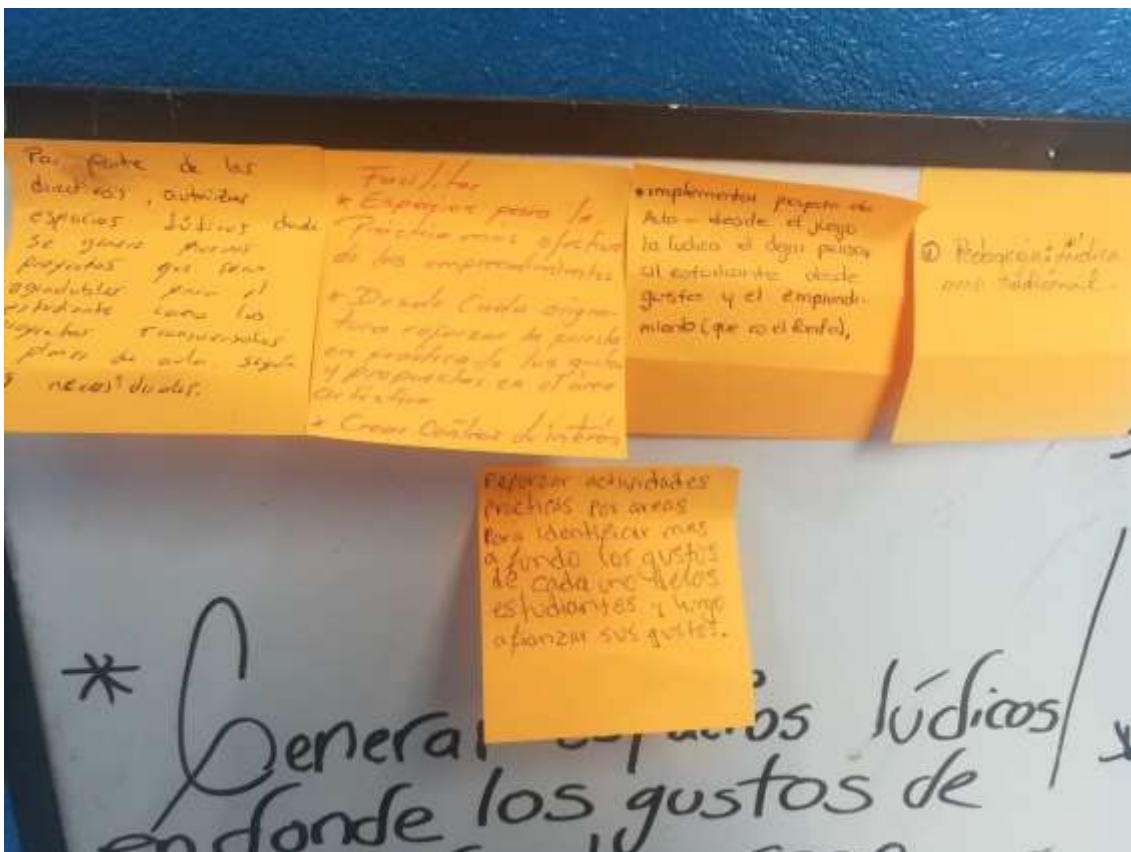 Por parte de los
directivos, autorizar
espacios lúdicos donde
se genere nuevos
proyectos que sean
agradables para el
estudiante como los
proyectos transversales
planes de aula según
necesidades.
Facilitar
* Espacios para la
Práctica mas efectiva
de los emprendimientos
* Desde Cada asigna-
tura reforzar la puesta
en practica de los gustos
y propuestas en el área
artistica
* Crear Centros de interés
* implementar proyecto de
Aula - desde el juego
la ludica el dejar pensar
al estudiante desde
gustos y el emprendi-
miento (que es el fondo),
① Pedagogía lúdica
no tradicional.
Reforzar actividades
practicas por areas
Para identificar mas
a fundo los gustos
de cada uno delos
estudiantes y luego
afianzar sus gustos.
* General espacios lúdicos
endonde los gustos de